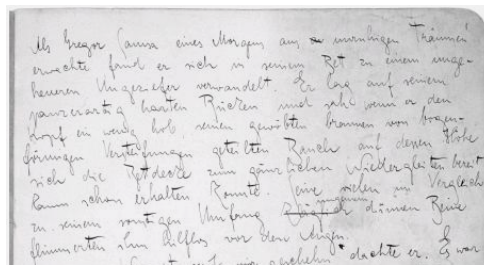 Als Gregor Samsa eines Morgens aus unruhigen Träumen
erwachte fand er sich in seinem Bet zu einem unge-
heueren Ungeziefer verwandelt. Er lag auf seinem
panzerartig harten Rücken und sah wenn er den
Kopf ein wenig hob, seinen gewölbten braunen von bogen-
förmigen Versteifungen geteilten Bauch auf dessen Höhe
sich die Bettdecke zum gänzlichen Niedergleiten bereit
kaum noch erhalten konnte. Seine vielen im Vergleich
zu seinem sonstigen Umfang dünnen Beine
flimmerten ihm hilflos vor den Augen.
mir geschehn" dachte er. Es war